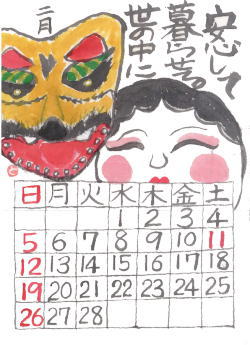 二月
安心して
暮らせる
世の中に
日 月 火 水 木 金 土
1 2 3 4
5 6 7 8 9 10 11
12 13 14 15 16 17 18
19 20 21 22 23 24 25
26 27 28